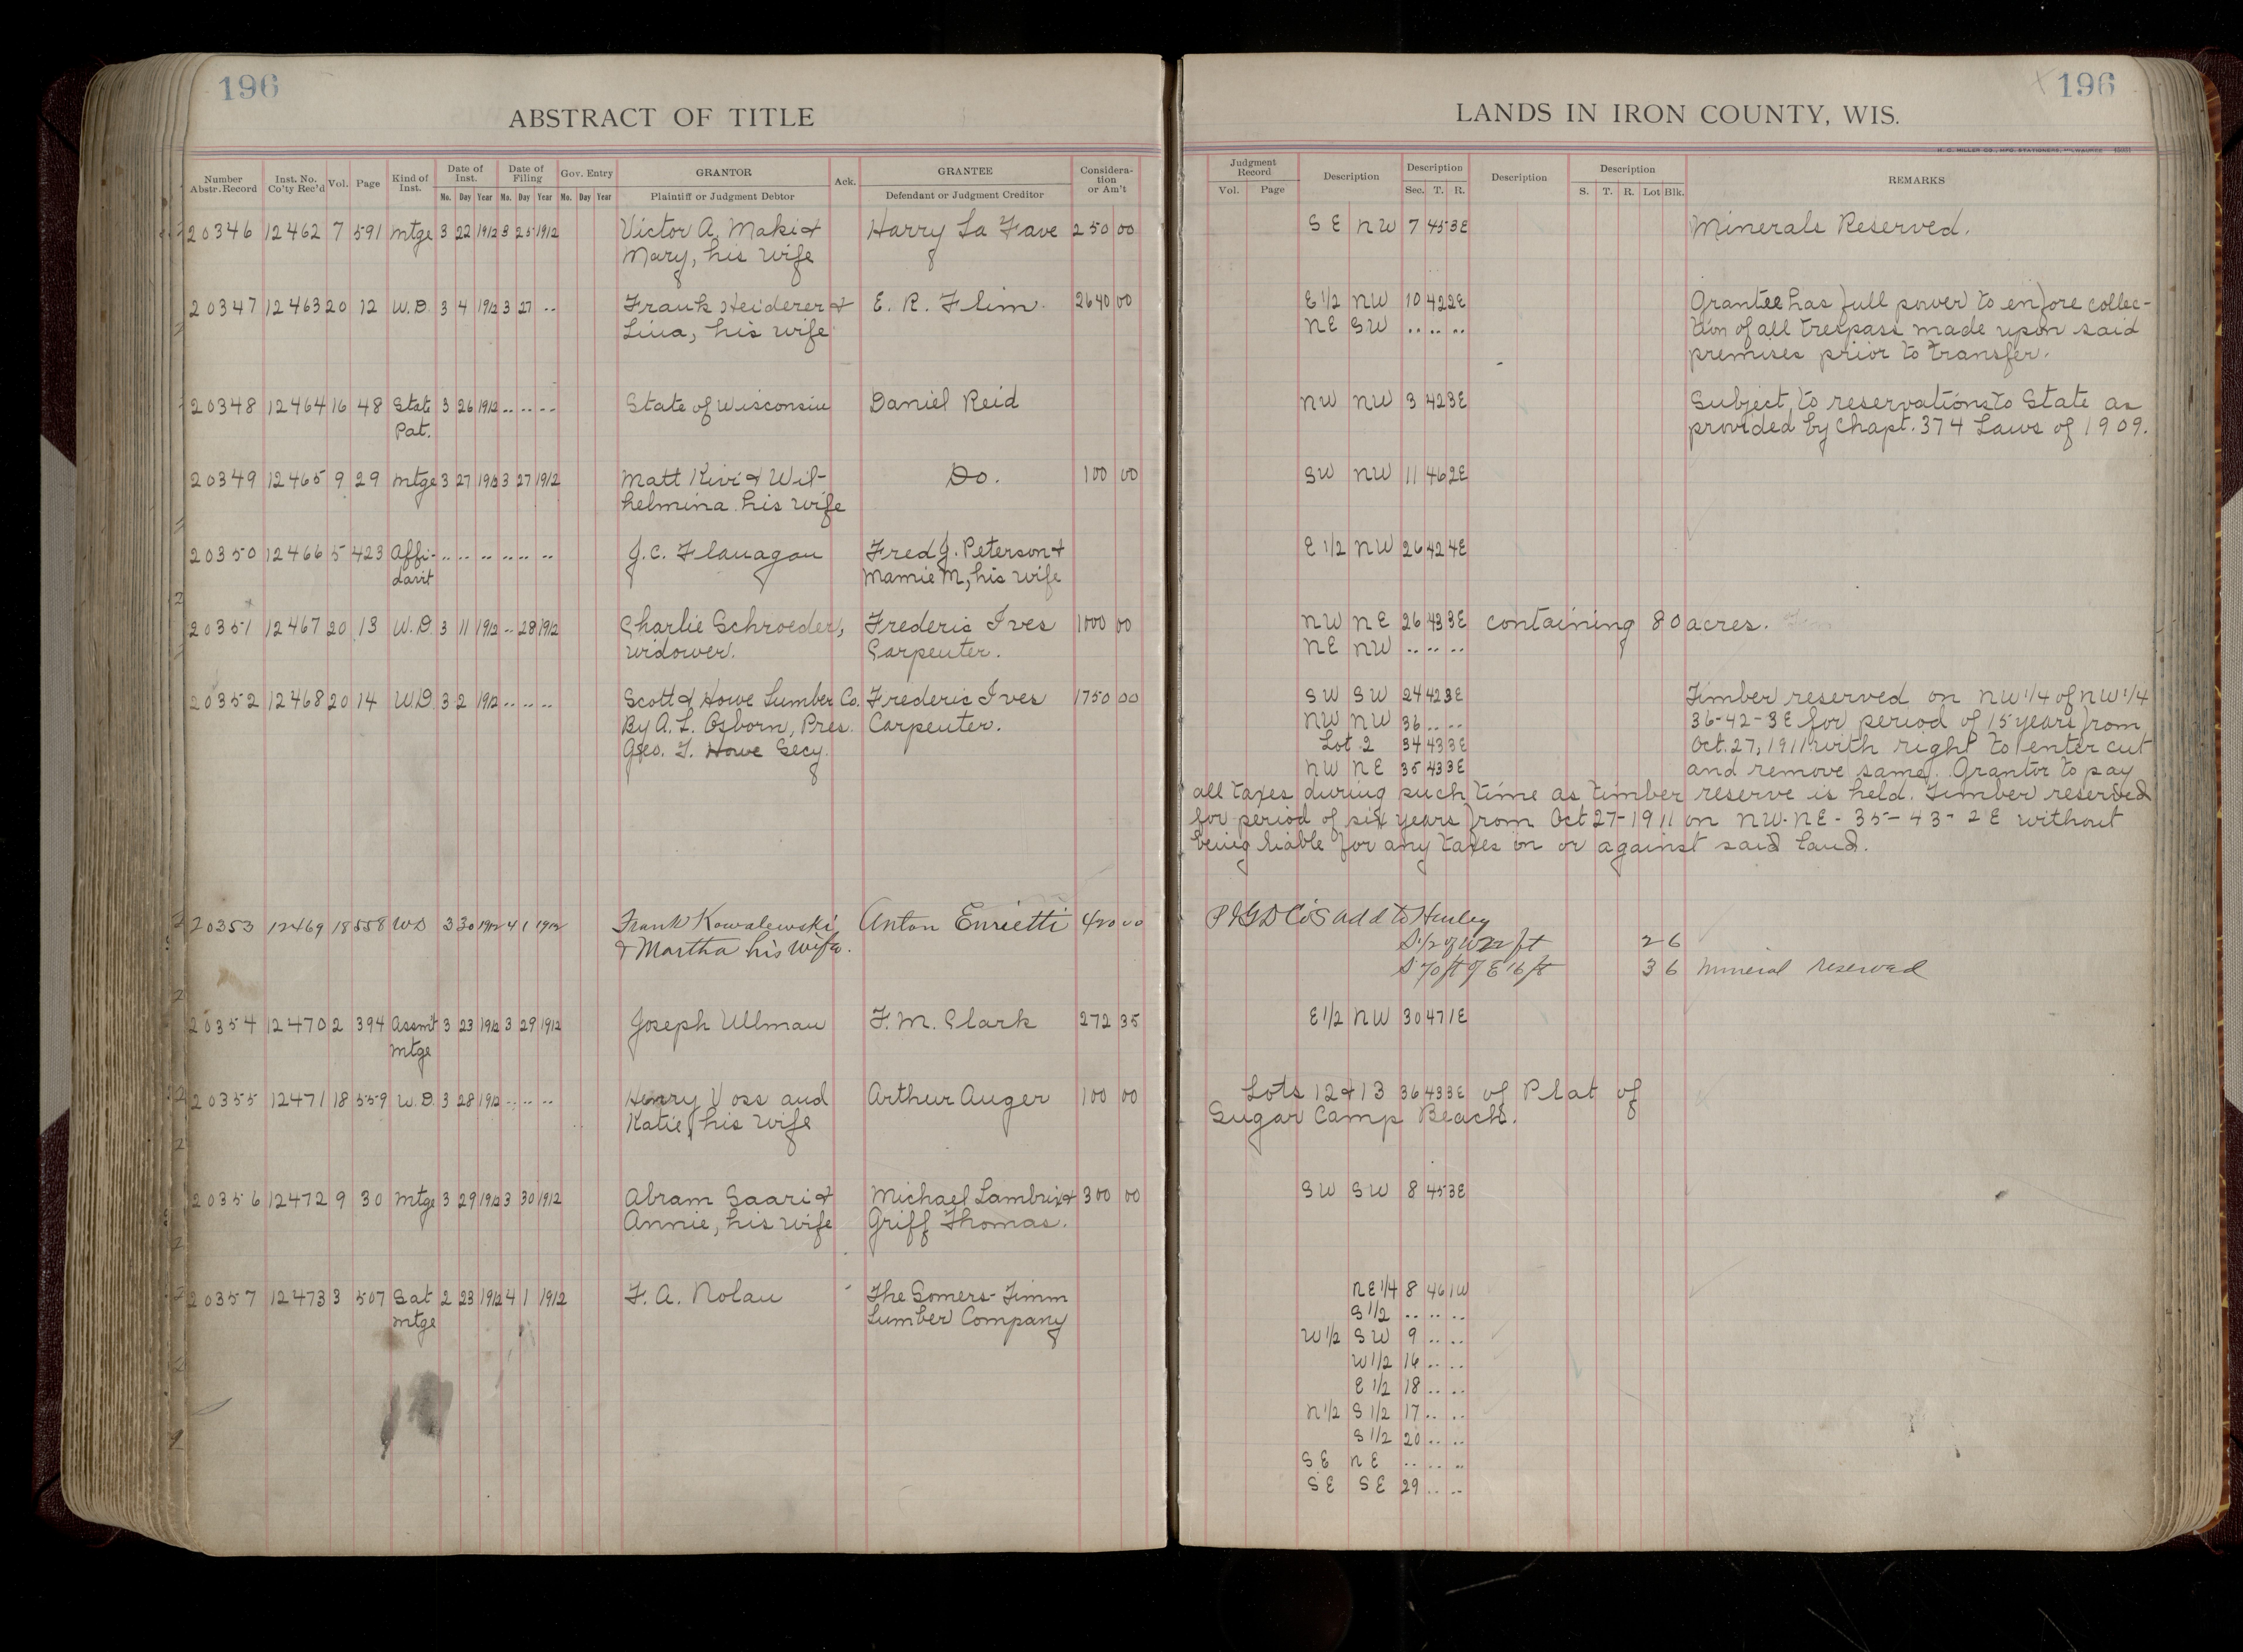 196
ABSTRACT OF TITLE
Number Abstr. Record | Inst. No. Co'ty Rec'd | Vol. | Page | Kind of Inst. | Date of Inst. Mo. Day Year | Date of Filing Mo. Day Year | Gov. Entry Mo. Day Year | GRANTOR Plaintiff or Judgment Debtor | Ack. | GRANTEE Defendant or Judgment Creditor | Consideration or Am't
20346 12462 7 591 Mtge 3 22 1912 3 25 1912 Victor A. Maki & Harry La Fave 250 00
Mary, his wife
20347 12463 20 12 W.D. 3 4 1912 3 27 .. Frank Heiderer & E. R. Flim. 2640 00
Lina, his wife
20348 12464 16 48 State 3 26 1912 .. .. .. State of Wisconsin Daniel Reid
Pat.
20349 12465 9 29 Mtge 3 27 1912 3 27 1912 Matt Kivi & Wil- Do. 100 00
helmina his wife
20350 12466 5 423 Affi- .. .. .. .. .. .. J.C. Flanagan Fred J. Peterson &
davit Mamie M, his wife
20351 12467 20 13 W.D. 3 11 1912 .. 28 1912 Charlie Schroeder, Frederic Ives 1000 00
widower. Carpenter.
20352 12468 20 14 W.D. 3 2 1912 .. .. .. Scott & Howe Lumber Co. Frederic Ives 1750 00
By A. L. Osborn, Pres. Carpenter.
Geo. T. Howe Secy.
20353 12469 18 558 WD 3 30 1912 4 1 1912 Frank Kowalewski Anton Enrietti 420 00
& Martha his wife.
20354 12470 2 394 Assmt 3 23 1912 3 29 1912 Joseph Ullman F. M. Clark 272 35
Mtge
20355 12471 18 559 W.D. 3 28 1912 .. .. .. Henry Voss and Arthur Auger 100 00
Katie, his wife
20356 12472 9 30 Mtge 3 29 1912 3 30 1912 Abram Saari & Michael Lambrix & 300 00
Annie, his wife Griff Thomas.
20357 12473 3 507 Sat 2 23 1912 4 1 1912 F. A. Nolan The Somers-Timm
Mtge Lumber Company
196
LANDS IN IRON COUNTY, WIS.
H. C. MILLER CO., MFG. STATIONERS, MILWAUKEE
Judgment Record Vol. Page | Description | Description Sec. T. R. | Description | Description S. T. R. Lot Blk. | REMARKS
SE NW 7 45 3E Minerals Reserved.
E 1/2 NW 10 42 2E Grantee has full power to enfore collec-
NE SW .. .. .. tion of all trespass made upon said
premises prior to transfer.
NW NW 3 42 3E Subject to reservations to State as
provided by Chapt. 374 Laws of 1909.
SW NW 11 46 2E
E 1/2 NW 26 42 4E
NW NE 26 43 3E containing 80 acres.
NE NW .. .. ..
SW SW 24 42 3E Timber reserved on NW 1/4 of NW 1/4
NW NW 36 .. .. 36-42-3E for period of 15 years from
Lot 2 34 43 3E Oct. 27, 1911 with right to enter cut
NW NE 35 43 3E and remove same. Grantor to pay
all taxes during such time as timber reserve is held. Timber reserved
for period of six years from Oct 27-1911 on NW-NE-35-43-2E without
being liable for any taxes on or against said land.
Co's add to Hurley
S 1/2 of W 22 ft 2 6
S 70 ft of E 16 ft 3 6 Mineral reserved
E 1/2 NW 30 47 1E
Lots 12 & 13 36 43 3E of Plat of
Sugar Camp Beach.
SW SW 8 45 3E
NE 1/4 8 46 1W
S 1/2 .. .. ..
W 1/2 SW 9 .. ..
W 1/2 16 .. ..
E 1/2 18 .. ..
N 1/2 S 1/2 17 .. ..
S 1/2 20 .. ..
SE NE .. .. ..
SE SE 29 .. ..